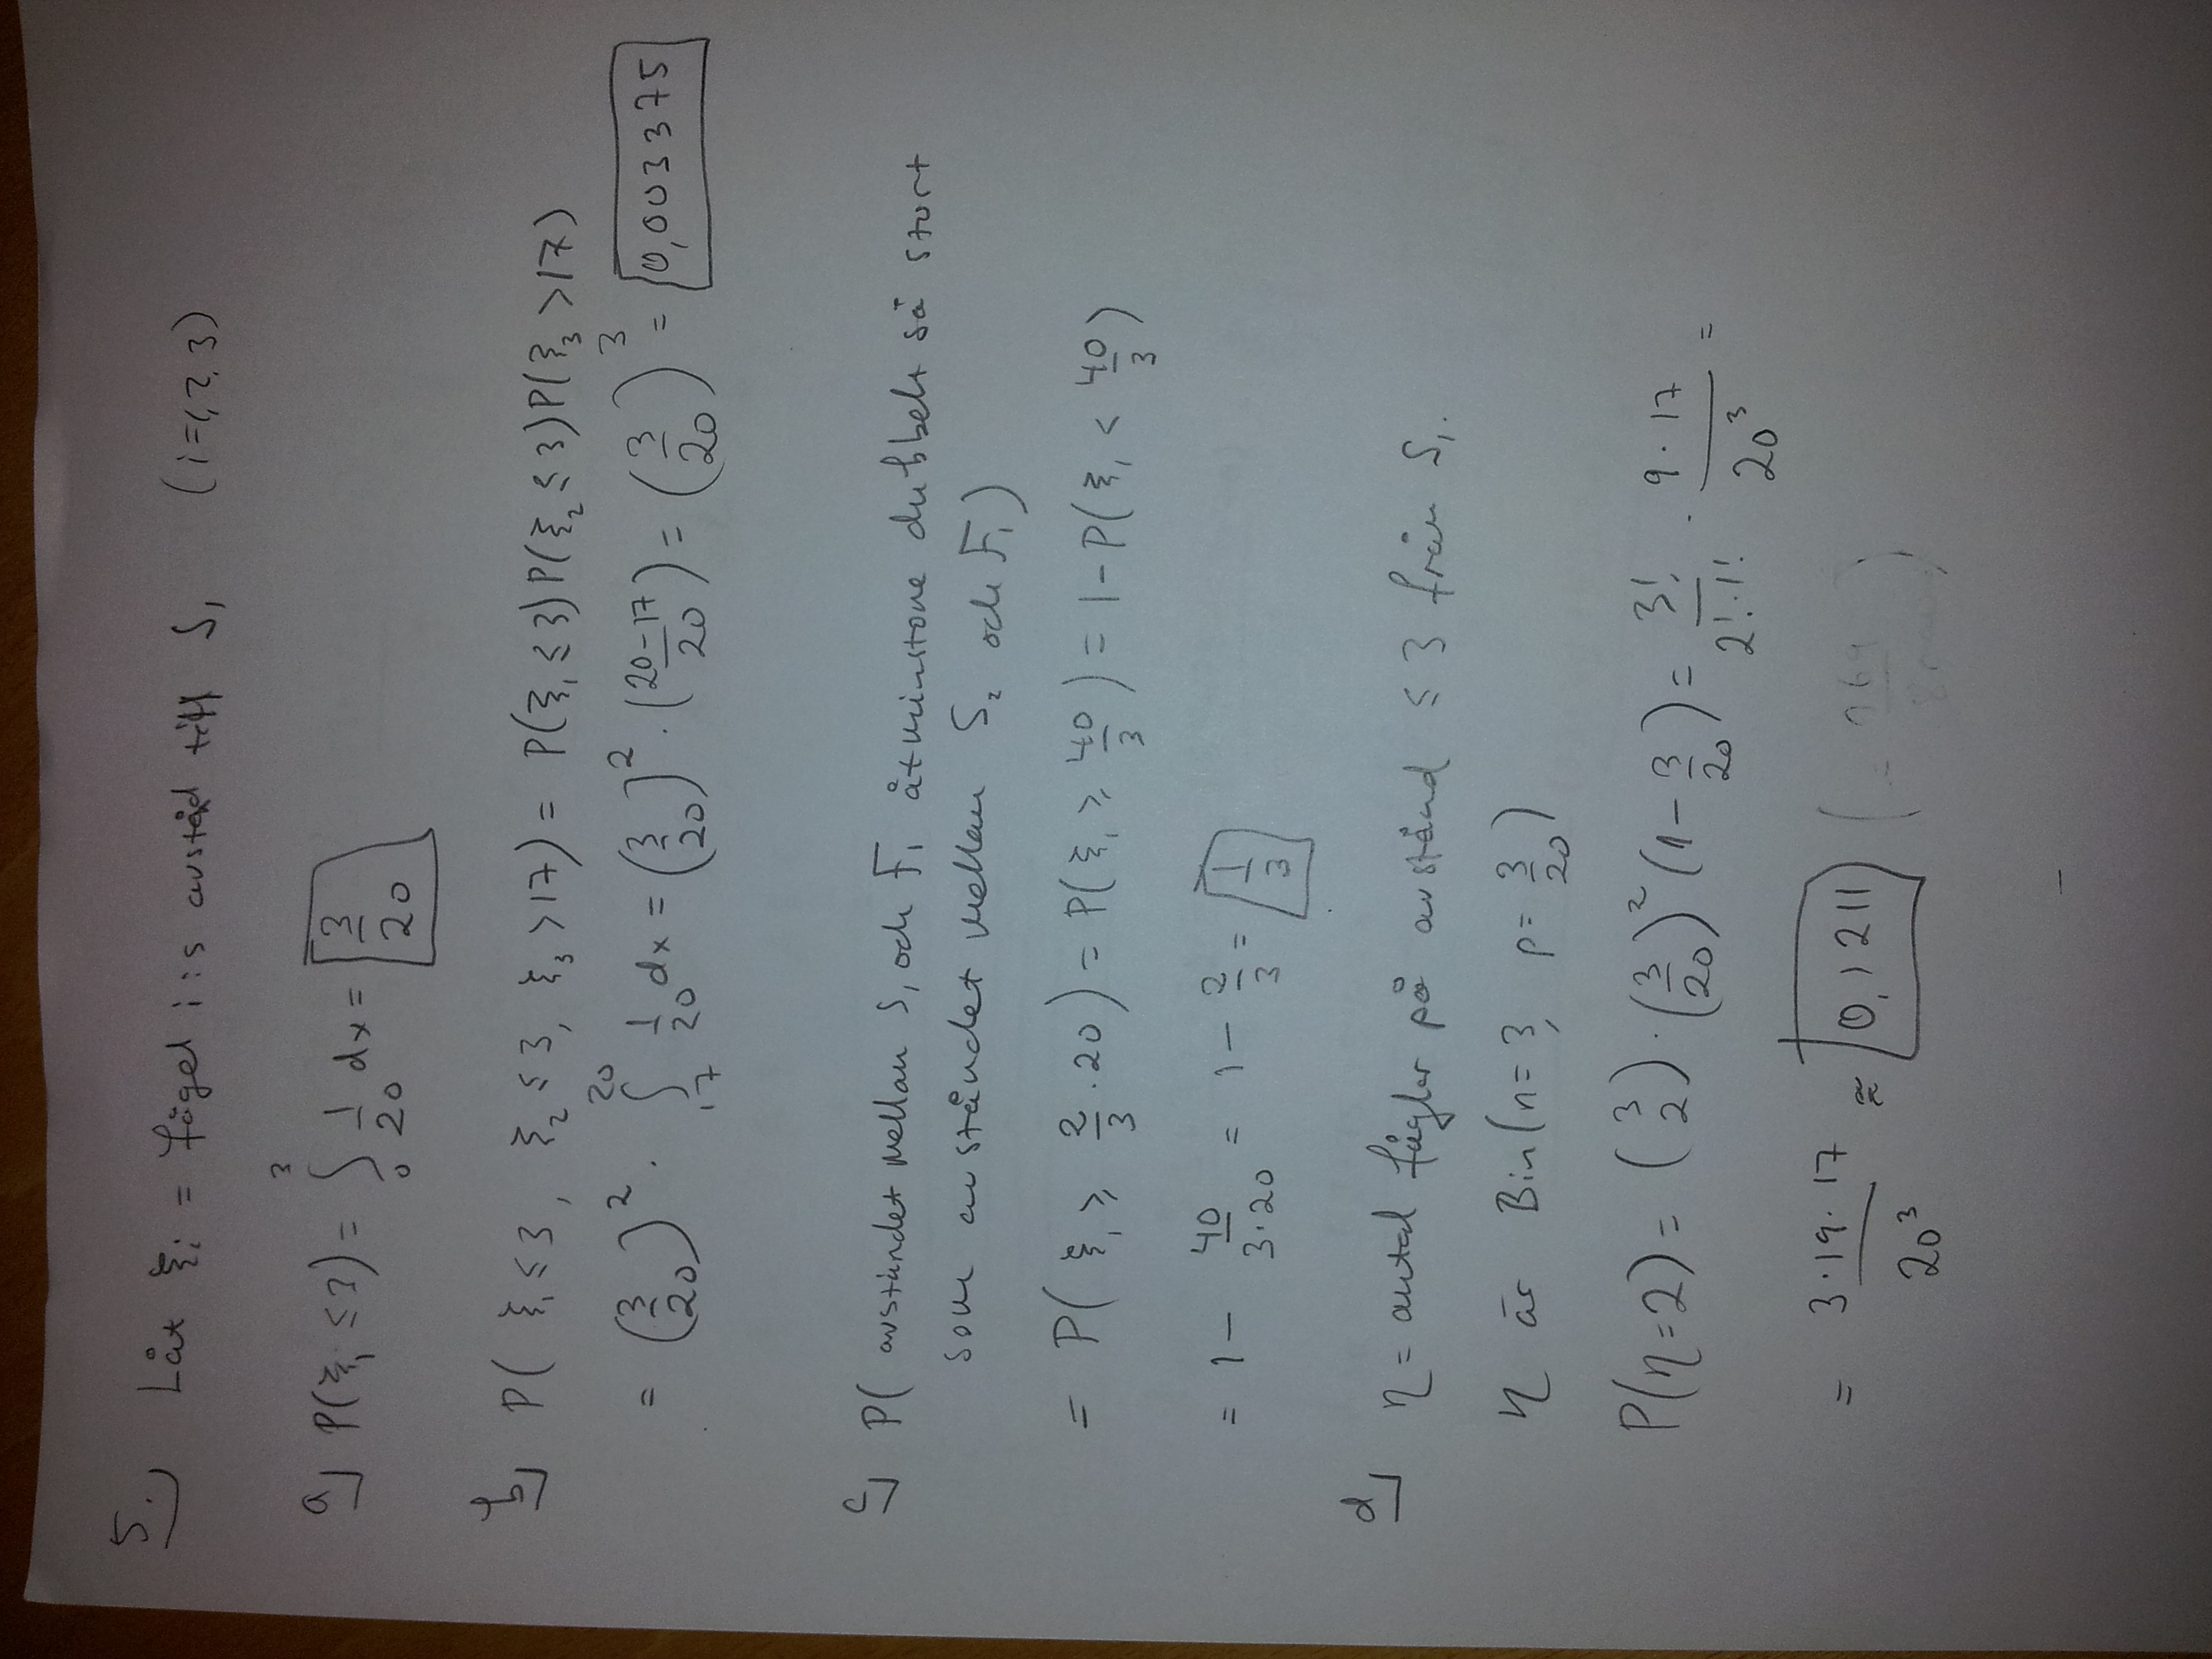 5.) Låt ξᵢ = fågel i:s avståd till S₁ (i=1,2,3)
a) P(ξ₁ ≤ 3) = ∫₀³ 1/20 dx = 3/20
b) P(ξ₁ ≤ 3, ξ₂ ≤ 3, ξ₃ > 17) = P(ξ₁ ≤ 3)P(ξ₂ ≤ 3)P(ξ₃ > 17)
= (3/20)² · ∫₁₇²⁰ 1/20 dx = (3/20)² · (20-17/20) = (3/20)³ = 0,003375
c) P(avståndet mellan S₁ och F₁ åtminstone dubbelt så stort
som avståndet mellan S₂ och F₁)
= P(ξ₁ ≥ 2/3 · 20) = P(ξ₁ ≥ 40/3) = 1 - P(ξ₁ < 40/3)
= 1 - 40/3·20 = 1 - 2/3 = 1/3
d) η = antal fåglar på avstånd ≤ 3 från S₁.
η är Bin(n=3, p=3/20)
P(η=2) = (3 2) · (3/20)² (1 - 3/20) = 3!/2!·1! · 9·17/20³ =
= 3·19·17/20³ ≈ 0,1211 (=